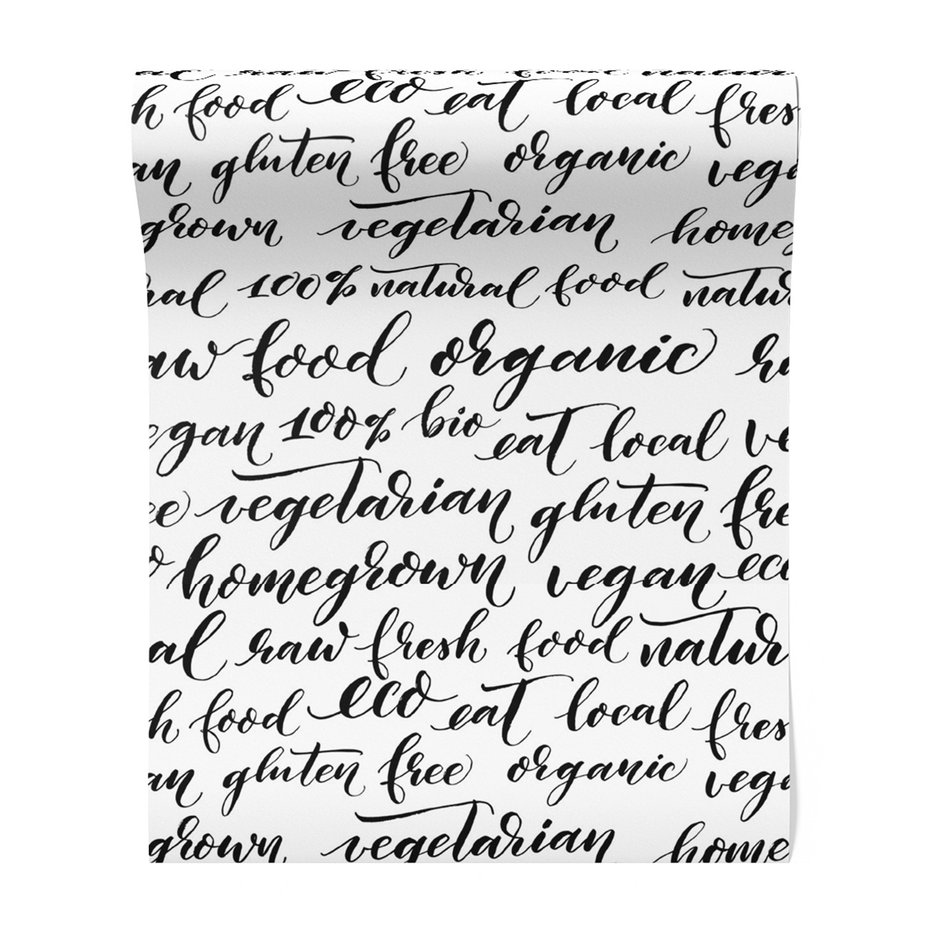 h food eco eat local fres
an gluten free organic vega
grown vegetarian homeg
ral 100% natural food natur
aw food organic ra
egan 100% bio eat local ve
ee vegetarian gluten fre
o homegrown vegan eco
al raw fresh food natur
h food eco eat local fres
an gluten free organic vega
grown vegetarian home